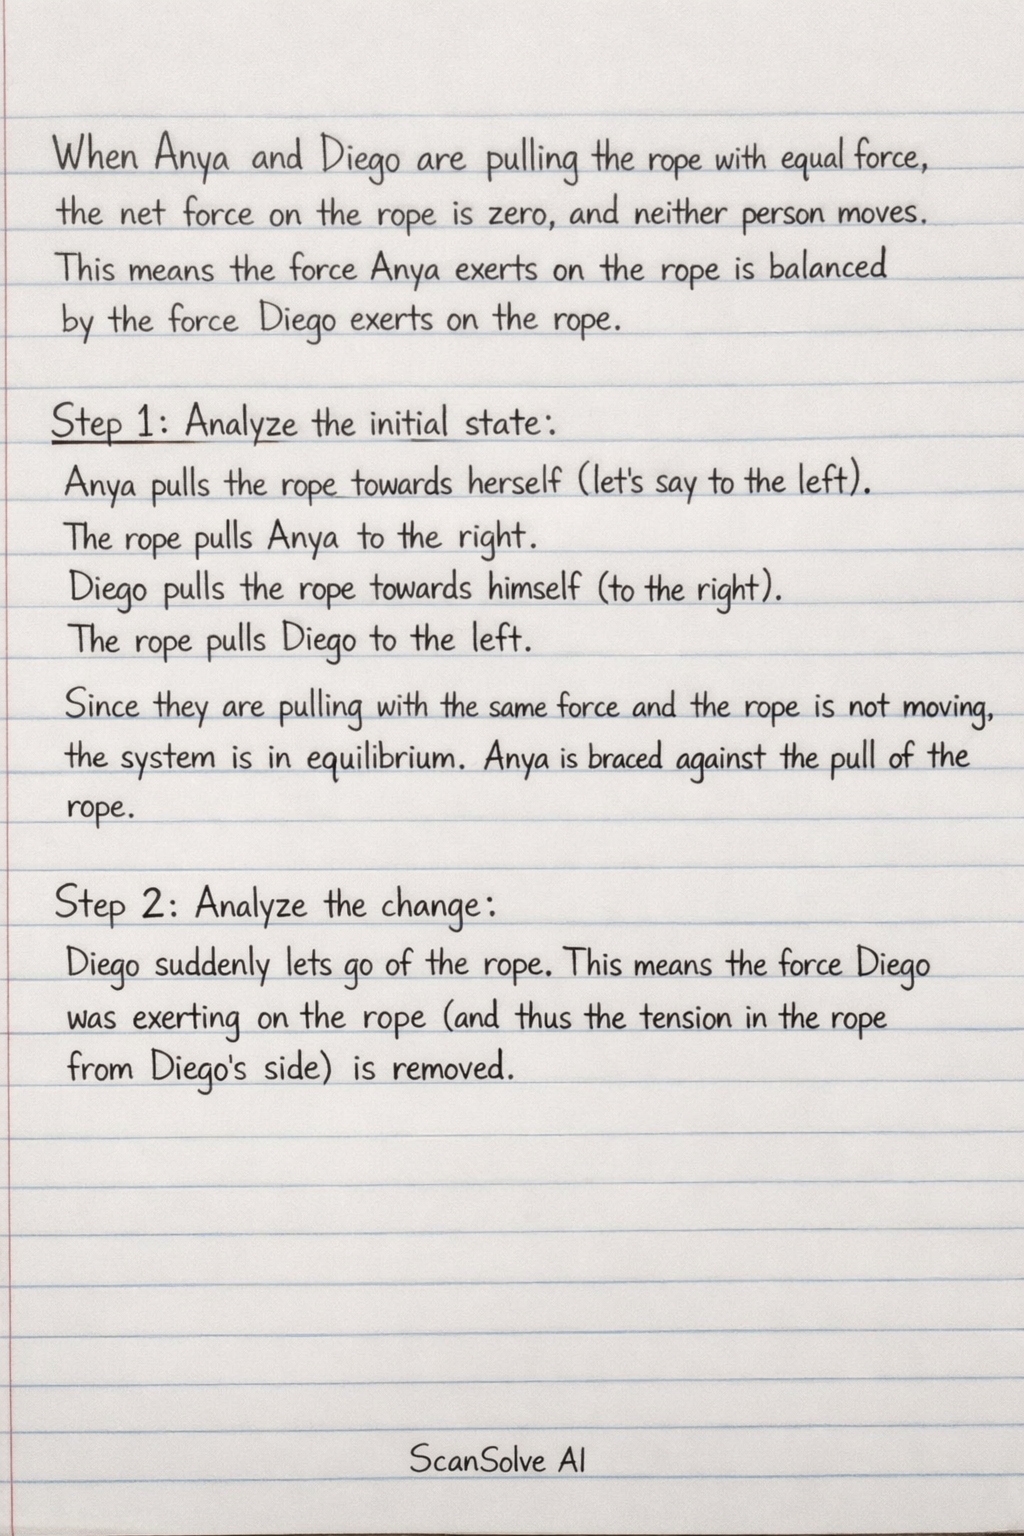 When Anya and Diego are pulling the rope with equal force,
the net force on the rope is zero, and neither person moves.
This means the force Anya exerts on the rope is balanced
by the force Diego exerts on the rope.
Step 1: Analyze the initial state:
Anya pulls the rope towards herself (let's say to the left).
The rope pulls Anya to the right.
Diego pulls the rope towards himself (to the right).
The rope pulls Diego to the left.
Since they are pulling with the same force and the rope is not moving,
the system is in equilibrium. Anya is braced against the pull of the
rope.
Step 2: Analyze the change:
Diego suddenly lets go of the rope. This means the force Diego
was exerting on the rope (and thus the tension in the rope
from Diego's side) is removed.
ScanSolve AI